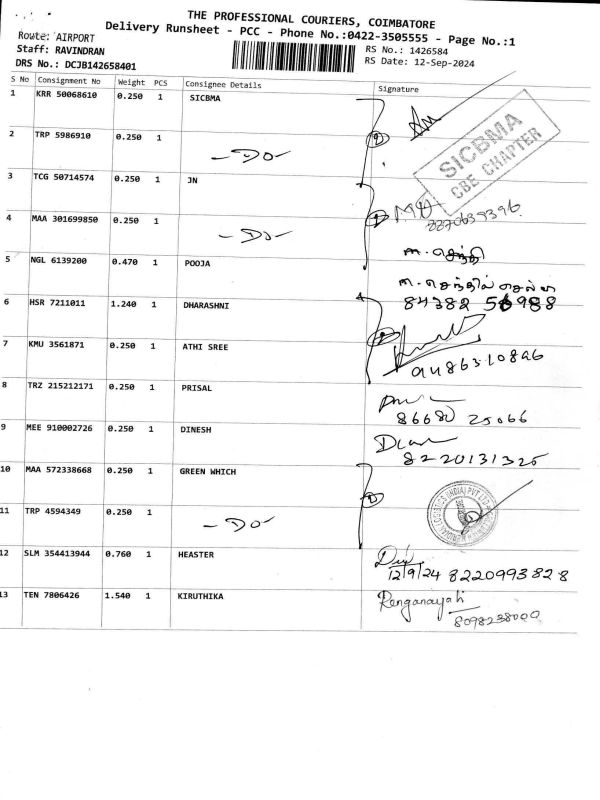 THE PROFESSIONAL COURIERS, COIMBATORE
Delivery Runsheet - PCC - Phone No.:0422-3505555 - Page No.:1
Route: AIRPORT
Staff: RAVINDRAN
DRS No.: DCJB142658401
RS No.: 1426584
RS Date: 12-Sep-2024
S No Consignment No Weight PCS Consignee Details Signature
1 KRR 50068610 0.250 1 SICBMA
SICBMA
CBE CHAPTER
2 TRP 5986910 0.250 1 -DO-
3 TCG 50714574 0.250 1 JN
4 MAA 301699850 0.250 1 -DO-
5 NGL 6139200 0.470 1 POOJA
84382 56988
6 HSR 7211011 1.240 1 DHARASHNI
7 KMU 3561871 0.250 1 ATHI SREE
9486310896
8 TRZ 215212171 0.250 1 PRISAL
86680 25066
9 MEE 910002726 0.250 1 DINESH
8220131325
10 MAA 572338668 0.250 1 GREEN WHICH
11 TRP 4594349 0.250 1 -DO-
12 SLM 354413944 0.760 1 HEASTER
12/9/24 8220993828
13 TEN 7806426 1.540 1 KIRUTHIKA
Renganayaki
8098238000